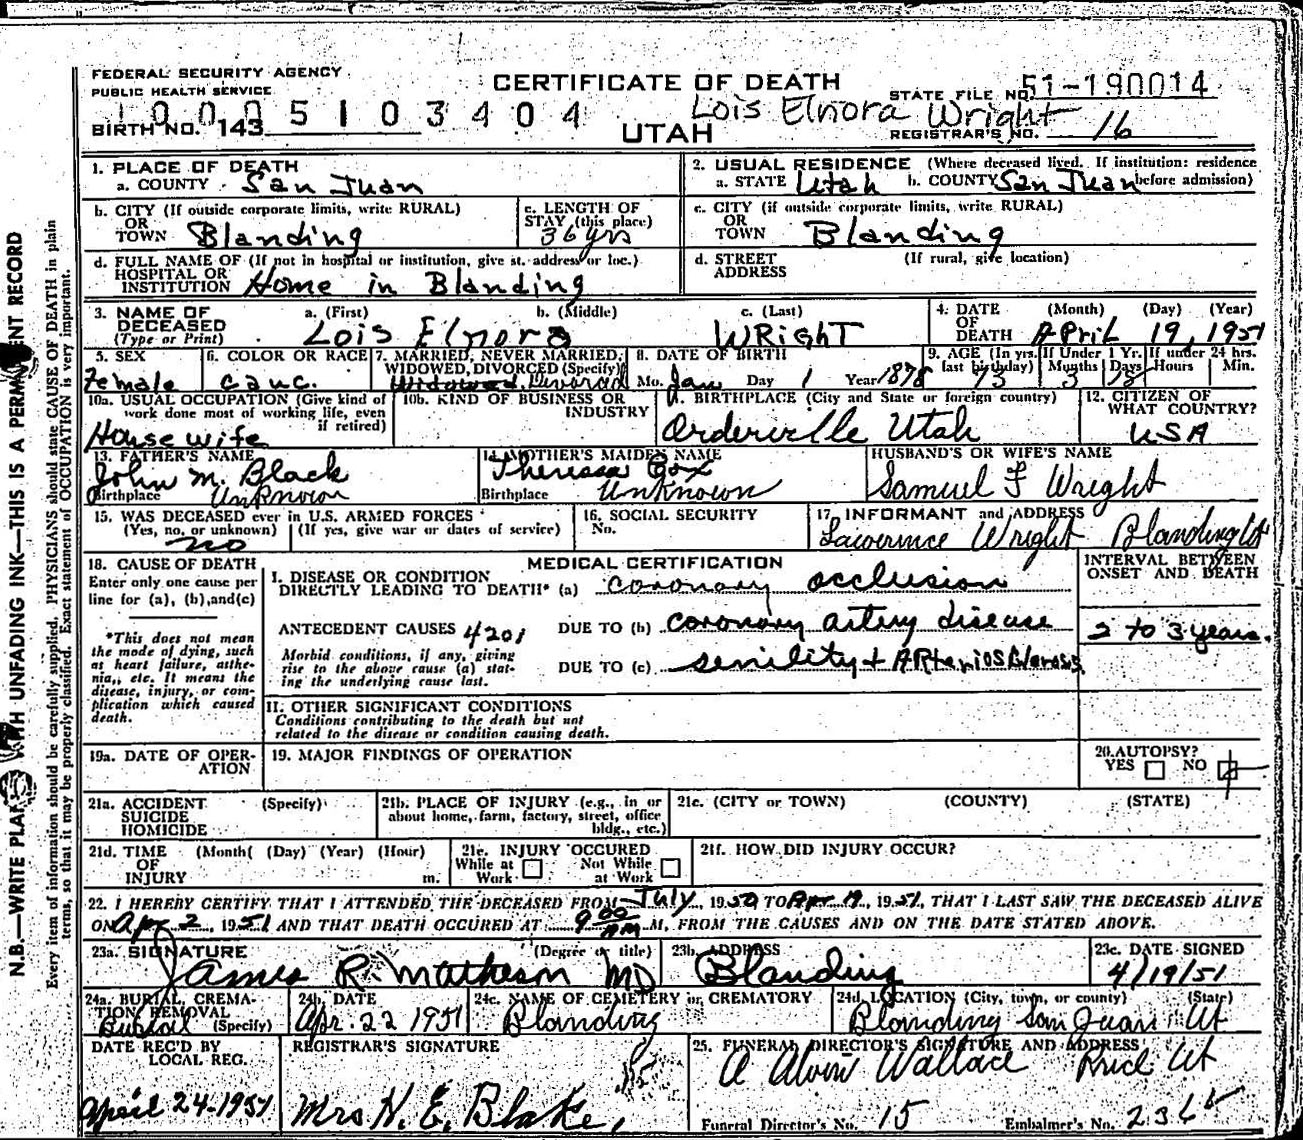 FEDERAL SECURITY AGENCY
PUBLIC HEALTH SERVICE
CERTIFICATE OF DEATH
STATE FILE NO. 51-190014
1 0 0 0 5 1 0 3 4 0 4
Lois Elnora Wright
BIRTH NO. 143
UTAH
REGISTRAR'S NO. 16
1. PLACE OF DEATH
a. COUNTY San Juan
2. USUAL RESIDENCE (Where deceased lived. If institution: residence before admission)
a. STATE Utah b. COUNTY San Juan
b. CITY (If outside corporate limits, write RURAL)
OR
TOWN Blanding
c. LENGTH OF
STAY (this place)
36 yrs
c. CITY (if outside corporate limits, write RURAL)
OR
TOWN Blanding
d. FULL NAME OF (If not in hospital or institution, give st. address or loc.)
HOSPITAL OR
INSTITUTION Home in Blanding
d. STREET (If rural, give location)
ADDRESS
3. NAME OF
DECEASED
(Type or Print)
a. (First) b. (Middle) c. (Last)
Lois Elnora Wright
4. DATE OF DEATH (Month) (Day) (Year)
April 19, 1951
5. SEX
Female
6. COLOR OR RACE
Cauc.
7. MARRIED, NEVER MARRIED,
WIDOWED, DIVORCED (Specify)
Widowed, Divorced
8. DATE OF BIRTH
Mo. Jan Day 1 Year 1878
9. AGE (In yrs. last birthday) 73
If Under 1 Yr. Months 3 Days 18
If under 24 hrs. Hours Min.
10a. USUAL OCCUPATION (Give kind of
work done most of working life, even
if retired)
House wife
10b. KIND OF BUSINESS OR
INDUSTRY
11. BIRTHPLACE (City and State or foreign country)
Orderville Utah
12. CITIZEN OF
WHAT COUNTRY?
USA
13. FATHER'S NAME
John M. Black
Birthplace Unknown
14. MOTHER'S MAIDEN NAME
Theressa Cox
Birthplace Unknown
HUSBAND'S OR WIFE'S NAME
Samuel F Wright
15. WAS DECEASED ever in U.S. ARMED FORCES
(Yes, no, or unknown) (If yes, give war or dates of service)
no
16. SOCIAL SECURITY
No.
17. INFORMANT and ADDRESS
Lawerence Wright Blanding Ut
18. CAUSE OF DEATH
Enter only one cause per
line for (a), (b), and (c)
*This does not mean
the mode of dying, such
as heart failure, asthe-
nia, etc. It means the
disease, injury, or com-
plication which caused
death.
MEDICAL CERTIFICATION
I. DISEASE OR CONDITION
DIRECTLY LEADING TO DEATH* (a) coronary occlusion
ANTECEDENT CAUSES 4201 DUE TO (b) coronary artery disease
Morbid conditions, if any, giving
rise to the above cause (a) stat-
ing the underlying cause last.
DUE TO (c) senility + Arteriosclerosis
INTERVAL BETWEEN
ONSET AND DEATH
2 to 3 years.
II. OTHER SIGNIFICANT CONDITIONS
Conditions contributing to the death but not
related to the disease or condition causing death.
19a. DATE OF OPER-
ATION
19. MAJOR FINDINGS OF OPERATION
20. AUTOPSY?
YES NO
21a. ACCIDENT (Specify)
SUICIDE
HOMICIDE
21b. PLACE OF INJURY (e.g., in or
about home, farm, factory, street, office
bldg., etc.)
21c. (CITY or TOWN) (COUNTY) (STATE)
21d. TIME (Month( (Day) (Year) (Hour)
OF
INJURY m.
21e. INJURY OCCURED
While at Work Not While at Work
21f. HOW DID INJURY OCCUR?
22. I HEREBY CERTIFY THAT I ATTENDED THE DECEASED FROM July, 1950 TO Apr 19, 1951, THAT I LAST SAW THE DECEASED ALIVE
ON Apr 2, 1951 AND THAT DEATH OCCURED AT 9:00 AM M, FROM THE CAUSES AND ON THE DATE STATED ABOVE.
23a. SIGNATURE (Degree or title)
James R. Matheson MD
23b. ADDRESS
Blanding
23c. DATE SIGNED
4/19/51
24a. BURIAL, CREMA-
TION, REMOVAL
Burial (Specify)
24b. DATE
Apr. 22 1951
24c. NAME OF CEMETERY or CREMATORY
Blanding
24d. LOCATION (City, town, or county) (State)
Blanding San Juan Ut
DATE REC'D BY
LOCAL REG.
April 24-1951
REGISTRAR'S SIGNATURE
Mrs H. E. Blake,
25. FUNERAL DIRECTOR'S SIGNATURE AND ADDRESS
A Alvin Wallace Price Ut
Funeral Director's No. 15 Embalmer's No.
N.B.—WRITE PLAINLY WITH UNFADING INK—THIS IS A PERMANENT RECORD
Every item of information should be carefully supplied. PHYSICIANS should state CAUSE OF DEATH in plain
terms, so that it may be properly classified. Exact statement of OCCUPATION is very important.